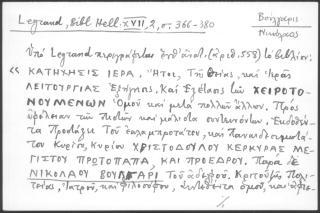 Legrand, Bibl. Hell. XVII, 2, σ. 366-380
Βούλγαρις
Νικόλαος
Ὑπὸ Legrand περιγράφεται ὑπ' ἀριθ. (ἀριθ. 558) τὸ βιβλίον:
« ΚΑΤΗΧΗΣΙΣ ΙΕΡΑ, Ἤτοι, Τῆς Θείας, καὶ Ἱερᾶς
ΛΕΙΤΟΥΡΓΙΑΣ Ἐξήγησις, Καὶ Ἐξέτασις τῶν ΧΕΙΡΟΤΟ-
ΝΟΥΜΕΝΩΝ Ὁμοῦ καὶ μετὰ πολλῶν ἄλλων. Πρὸς
ὠφέλειαν τῶν Πιστῶν καὶ μάλιστα Ἐκδοθεῖσα
Προστάξει Τοῦ ἐκλαμπροτάτου, καὶ Πανσιδεσιμωτά-
του Κυρίου, Κυρίου ΧΡΙΣΤΟΔΟΥΛΟΥ ΚΕΡΚΥΡΑΣ ΜΕ-
ΓΙΣΤΟΥ ΠΡΩΤΟΠΑΠΑ, ΚΑΙ ΠΡΟΕΔΡΟΥ. Παρὰ
ΝΙΚΟΛΑΟΥ ΒΟΥΛΓΑΡΙ Τοῦ ἀδελφοῦ. Κριτοῦ τῆς Πολι-
τείας, Ἰατροῦ, καὶ Φιλοσόφου, συντεθεῖσα ὁμοῦ, καὶ